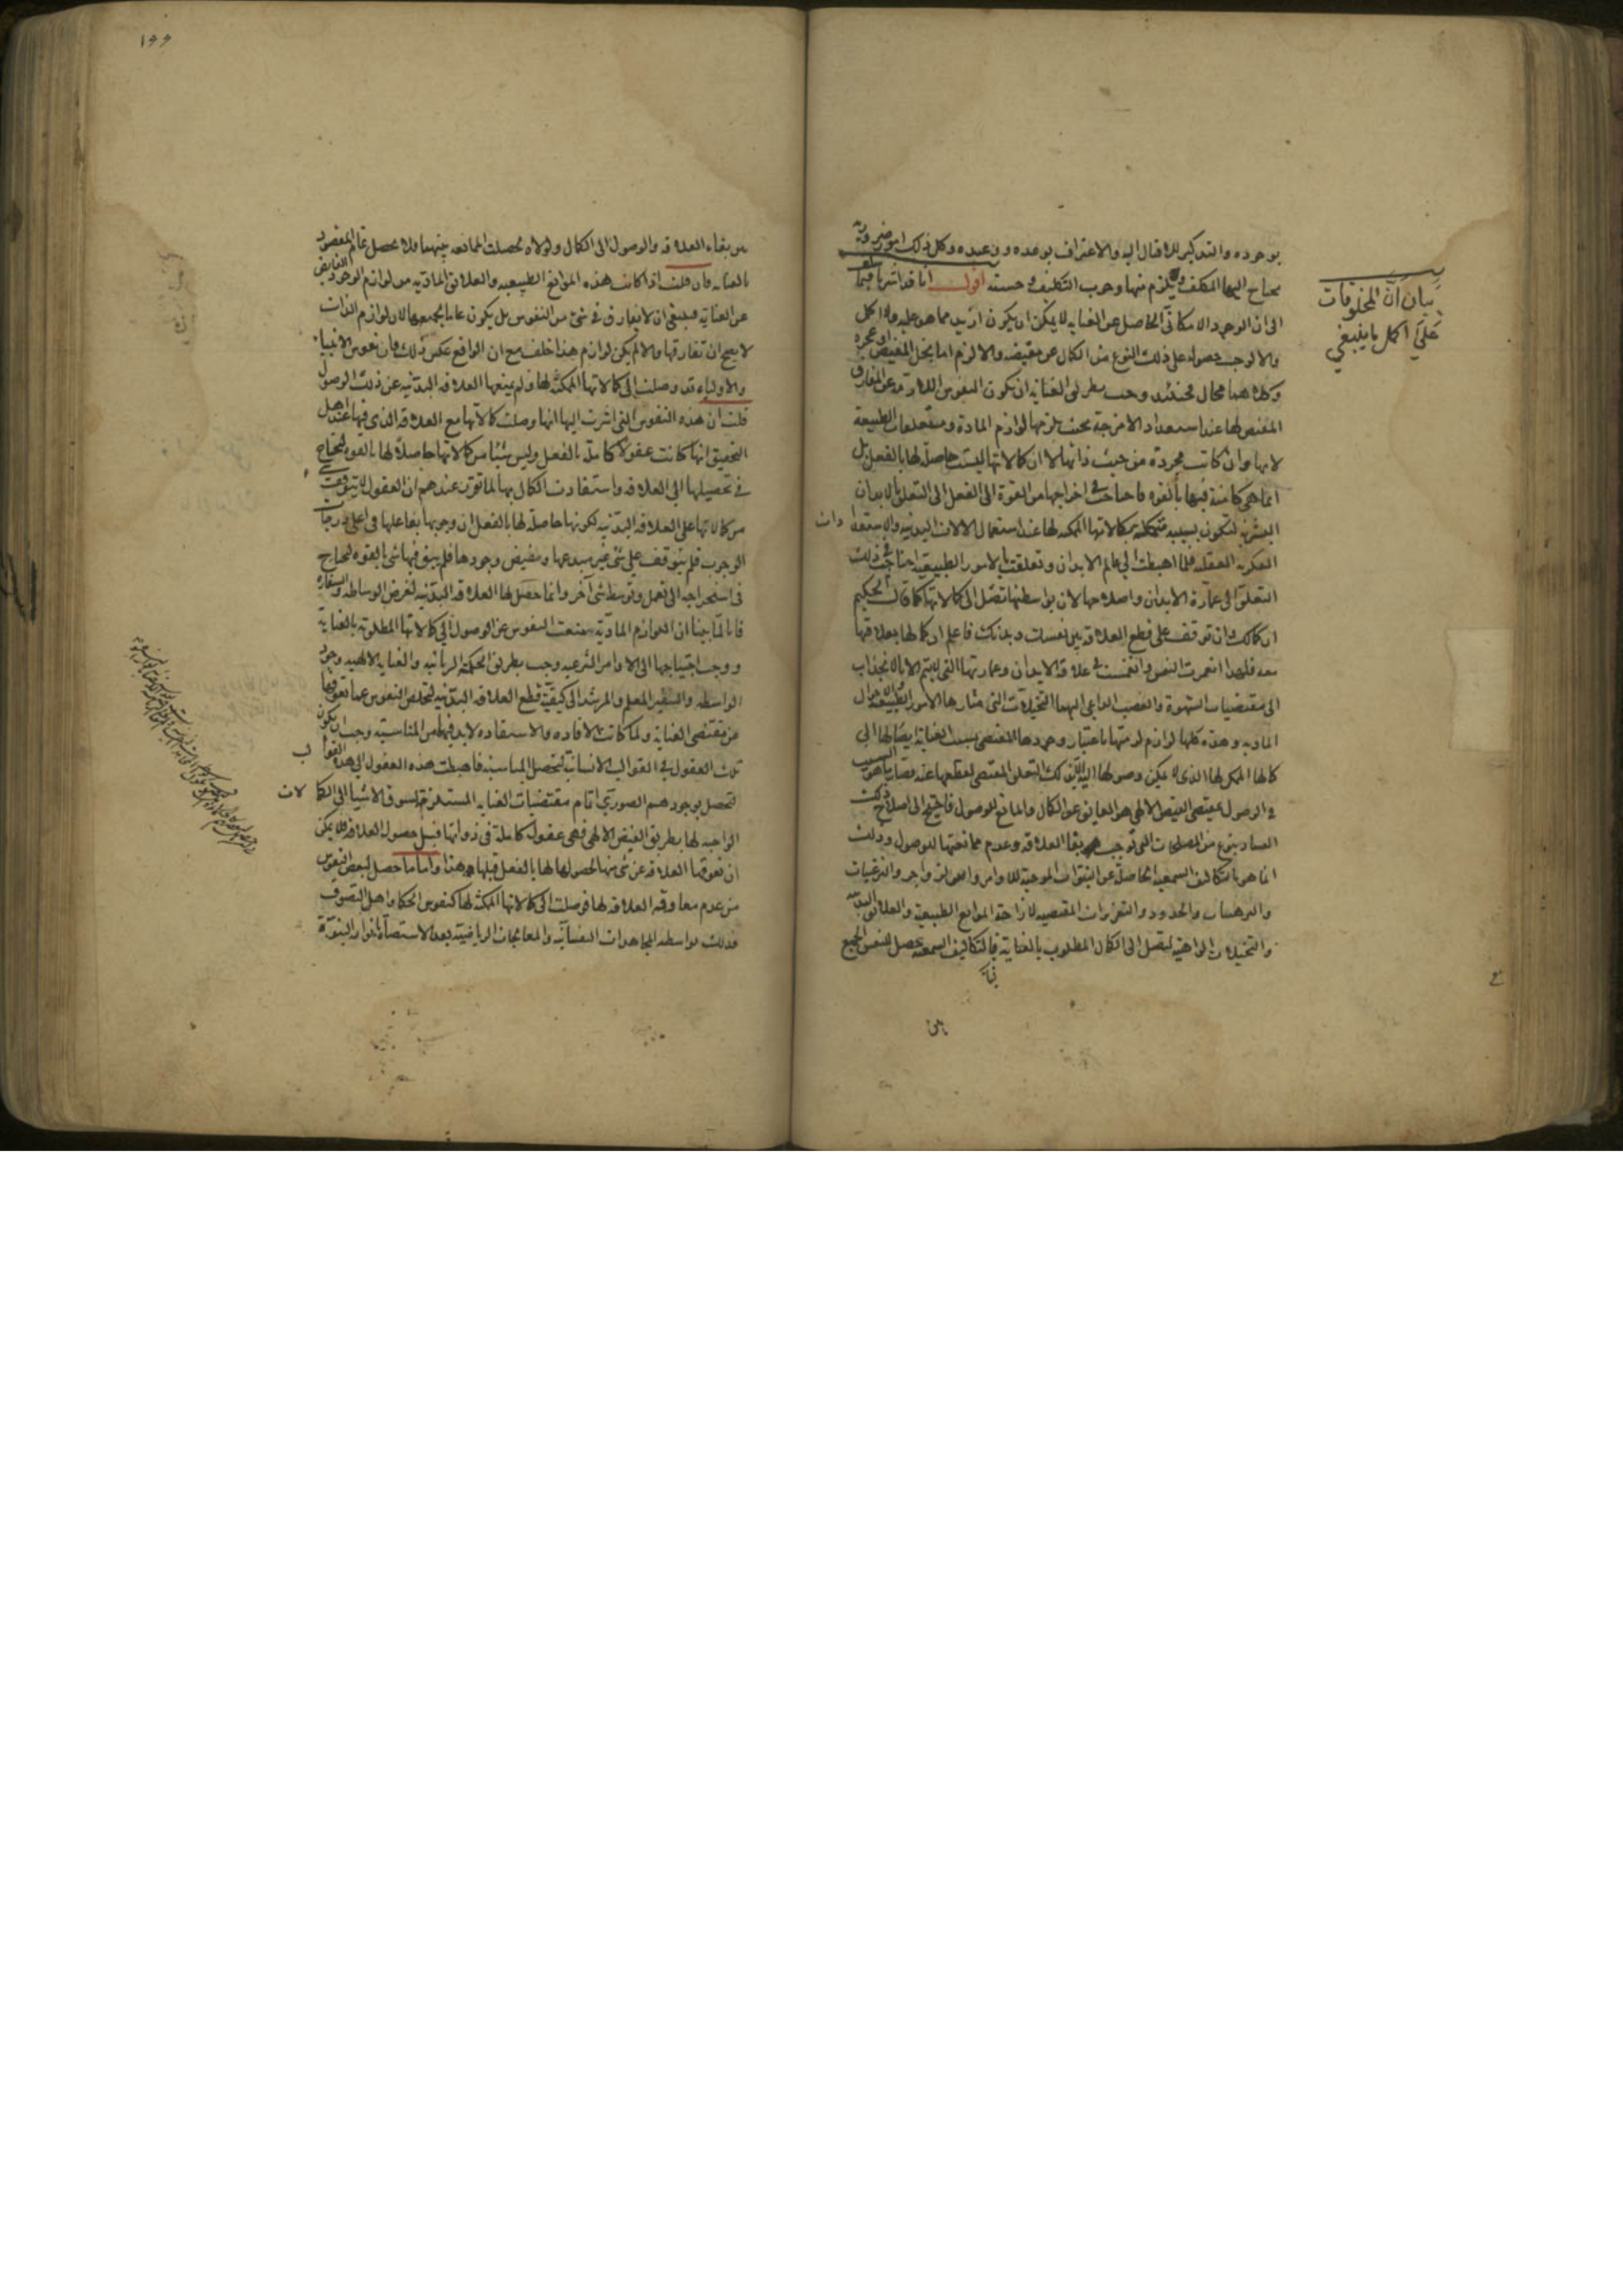 بوجوده والتذكير للاقبال اليه والاعتراف بوعده ووعيده وكل ذلك امور ضرورية
يحتاج اليها المكلف ويلزم منها وجوب التكليف وحسنه اقول انا قد اشرنا فيما سلف
الى ان الوجود الامكانى الحاصل عن العناية لا يمكن ان يكون ازيد مما هو عليه ولا اكمل
والا لوجب حصوله على ذلك النوع من الكمال عن مفيضه والا لزم اما بخل المفيض او عجزه
وكلاهما محال فحينئذ وجب بطريق العناية ان يكون النفوس اللازمة عن المفارق
المفيض لها عند استعداد الامزجة بحيث يلزمها لوازم المادة ومتعلقات الطبيعة
لانها وان كانت مجردة من حيث ذاتها الا ان كمالاتها ليست حاصلة لها بالفعل بل
انما هى كامنة فيها بالقوه فاحتاجت فى اخراجها من القوة الى الفعل الى التعلق بالابدان
البشرية لتكون بسببه متمكنة بكمالاتها الممكنة لها عند استعمال الالات البدنية والاستعدادات
الفكرية العقلية فلما اهبطت الى عالم الابدان وتعلقت بالامور الطبيعية احتاجت فى ذلك
التعلق الى عمارة الابدان واصلاحها لان بواسطتها تصل الى كمالاتها كما قال الحكيم
ان كمالك وان توقف على قطع العلاقة بين نفسك وبدنك فاعلم ان كمالها بعلاقتها
معه فلهذا انغمرت النفس وانغمست فى علاقة الابدان وعمارتها التى لا يتم الا بالانجذاب
الى مقتضيات الشهوة والغضب الداعى اليهما التخيلات التى مثارها الامور الطبيعية والاحوال
المادية وهذه كلها لوازم لزمتها باعتبار وجودها المقتضى بسبب العناية ايصالها الى
كمالها الممكن لها الذى لا يمكن وصولها اليه الا بذلك التعلق المقتضى لقطعها عنه فصار ما هو السبب
فى الوصول بمقتضى الفيض الالهى هو العايق عن الكمال والمانع للوصول فاحتيج الى اصلاح ذلك
الفساد بنوع من المصلحات التى توجب بقا العلاقة وعدم ممانعتها للوصول وذلك
انما هو بالتكاليف السمعية الحاصلة عن النبوات الموجبة للاوامر والنواهى والزواجر والترغيبات
والترهيبات والحدود والتعزيرات المقتضيه لازاحة الموانع الطبيعية والعلائق البدنية
والتخيلات الواهية ليتصل الى الكمال المطلوب بالعناية فبالتكاليف السمعية يحصل للنفس الجمع
بين
بيان ان المخلوقات
على اكمل ما ينبغي
١٩٩
بين بقاء العلاقة والوصول الى الكمال ولولاه لحصلت الممانعه بينهما فلا يحصل تمام المقصود
بالعنايه فان قلت اذا كانت هذه الموانع الطبيعيه والعلائق الماديه من لوازم الوجود الفايض
عن العناية فينبغى ان لا يفارق فى شئ من النفوس بل يكون عاما لجميعها لان لوازم الذات
لا يصح ان تفارقها والا لم يكن لوازم هذا خلف مع ان الواقع عكس ذلك فان نفوس الانبياء
والاولياء قد وصلت الى كمالاتها الممكنة لها ولم يمنعها العلاقه البدنيه عن ذلك الوصول
قلت ان هذه النفوس التى اشرت اليها انها وصلت كمالاتها مع العلاقة الذى فيها عند اهل
التحقيق انها كانت عقولا كاملة بالفعل وليس شيئا من كمالاتها حاصلة لها بالقوة لتحتاج
فى تحصيلها الى العلاقه واستفادت الكمال بها لما تقرر عندهم ان العقول لا يتوقف شئ
من كمالاتها على العلاقه البدنيه لكونها حاصلة لها بالفعل لان وجوبها بفاعلها فى اعلى درجات
الوجوب فلم يتوقف على شئ غير مبدعها ومفيض وجودها فلم يبق فيها شئ بالقوه لتحتاج
فى استخراجه الى تعمل وتوسط شئ آخر وانما حصل لها العلاقه البدنيه لغرض الوساطه والسفاره
فانا لما بينا ان اللوازم المادية منعت النفوس عن الوصول الى كمالاتها المطلوبة بالعناية
ووجب احتياجها الى الاوامر الشرعيه وجب بطريق الحكمة الربانيه والعنايه الالهيه وجود
الواسطه والسفير المعلم والمرشد الى كيفية قطع العلاقه البدنية لتخلص النفوس عما تعوقها
من مقتضى العناية ولما كانت الافاده والاستفاده لا بد فيهما من المناسبة وجب ان يكون
تلك العقول فى القوالب الانسانية لتحصل المناسبه فاهبطت هذه العقول الى هذه القوالب
لتحصل بوجودهم الصورى اتمام مقتضيات العنايه المستلزم لسوق الاشيا الى الكمالات
الواجبه لها بطريق الفيض الالهى فهى عقول كاملة فى ذواتها قبل حصول العلاقة فلا يمكن
ان تعوقها العلاقه عن شئ منها لحصولها لها بالفعل قبلها هذا واما ما حصل لبعض النفوس
من عدم معاوقه العلاقه لها فوصلت الى كمالاتها الممكنة لها كنفوس الحكما واهل التصوف
فذلك بواسطه المجاهدات النفسانية والمعالجات الرياضية بعد الاستضاءة بانوار النبوة